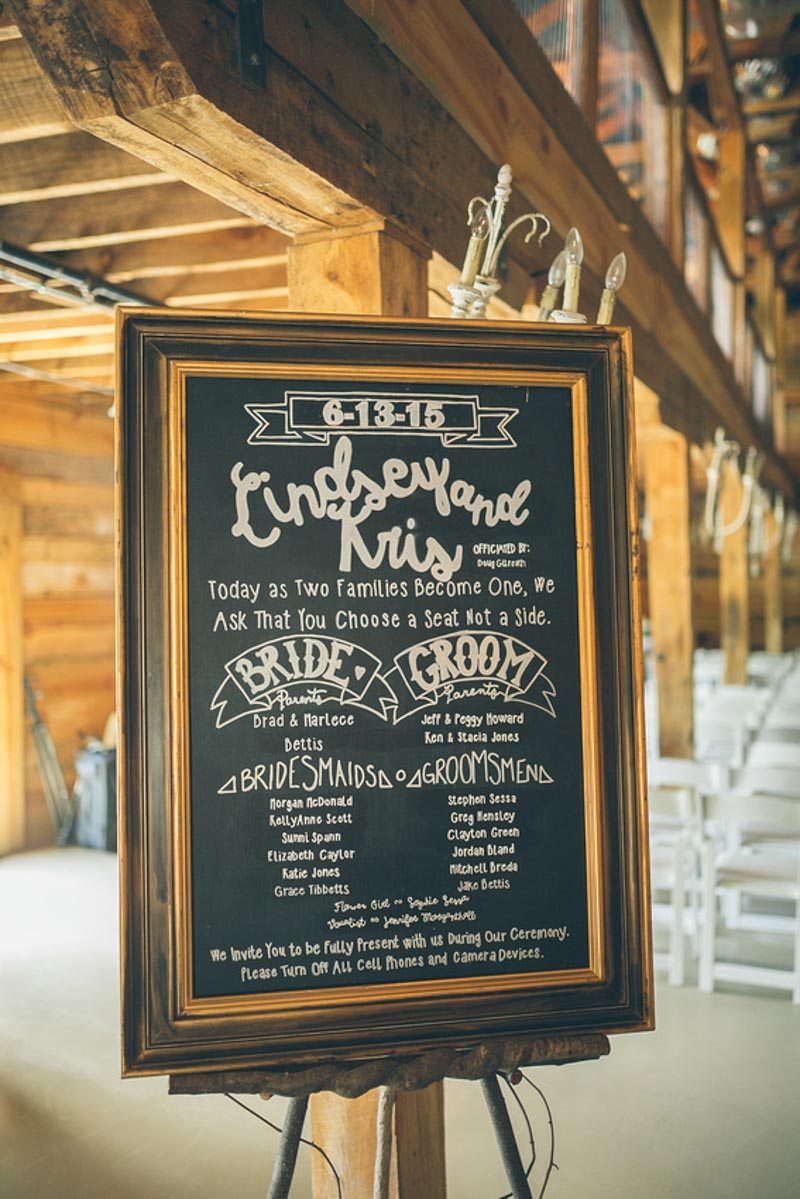 6-13-15
Lindsey and
Kris
OFFICIATED BY:
Doug Gilreath
Today as Two Families Become One, We
Ask That You Choose a Seat Not a Side.
BRIDE
Parents
GROOM
Parents
Brad & Marlece
Bettis
Jeff & Peggy Howard
Ken & Stacia Jones
BRIDESMAIDS
GROOMSMEN
Morgan McDonald
KellyAnne Scott
Sunni Spann
Elizabeth Caylor
Katie Jones
Grace Tibbetts
Stephen Sessa
Greg Hensley
Clayton Green
Jordan Bland
Mitchell Breda
Jake Bettis
Flower Girl ~ Sessa
Vocalist ~ Jennifee
We Invite You to be Fully Present with us During Our Ceremony.
Please Turn Off All Cell Phones and Camera Devices.